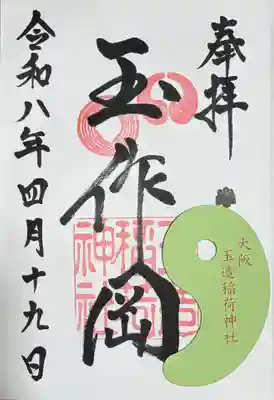 奉拝
大阪
玉造稲荷神社
玉作岡
玉造稲荷神社
令和八年四月十九日